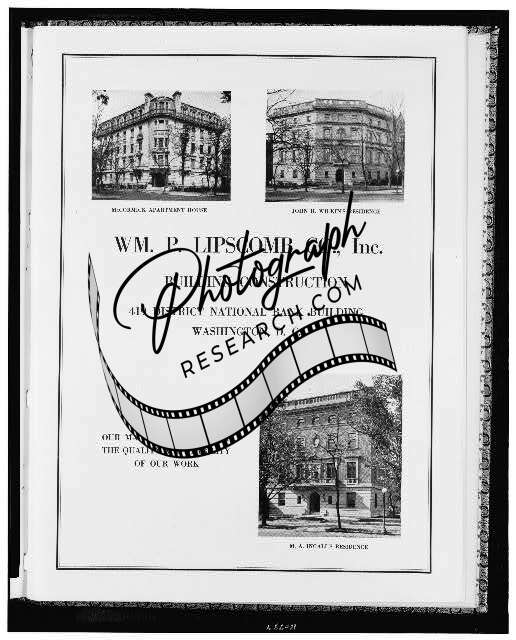 McCORMICK APARTMENT HOUSE
JOHN H. WILKINS RESIDENCE
WM. P. LIPSCOMB CO., Inc.
BUILDING CONSTRUCTION
DISTRICT NATIONAL BANK BUILDING
WASHINGTON, D. C.
Photograph
RESEARCH.COM
OUR
THE QUALITY
OF OUR WORK
M. A. INGALLS RESIDENCE